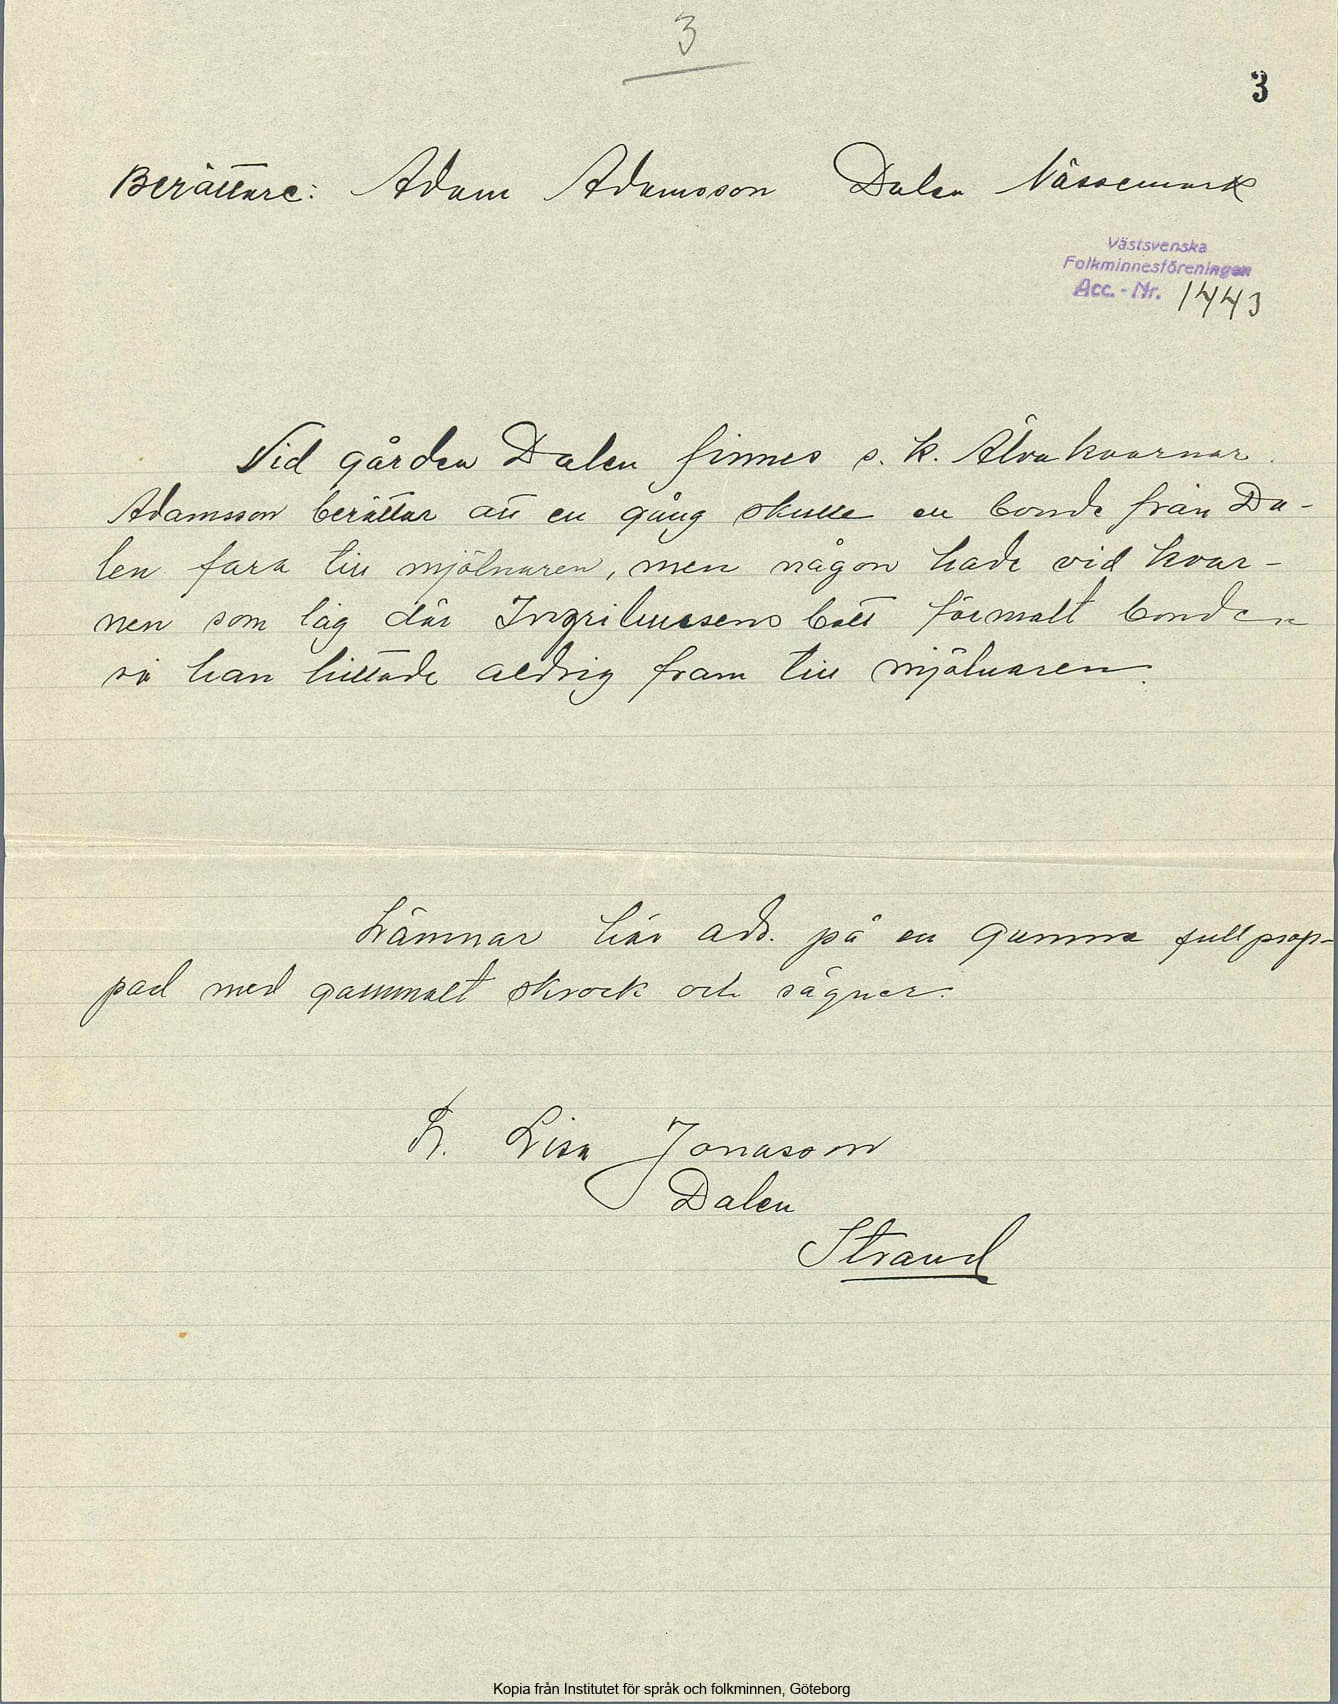 3
3
Berättare: Adam Adamsson Dalen Nössemark
Västsvenska
Folkminnesföreningen
Acc.-Nr. 1443
Vid gården Dalen finnes s. k. Älvakvarnar.
Adamsson berättar att en gång skulle en bonde från Da-
len fara till mjölnaren, men någon hade vid kvar-
nen som låg där stått förmalt bonden
så han hittade aldrig fram till mjölnaren.
Lämnar här ads. på en gumma fullprop-
pad med gammalt skrock och sägner.
Fr. Lisa Jonasson
Dalen
Strand
Kopia från Institutet för språk och folkminnen, Göteborg